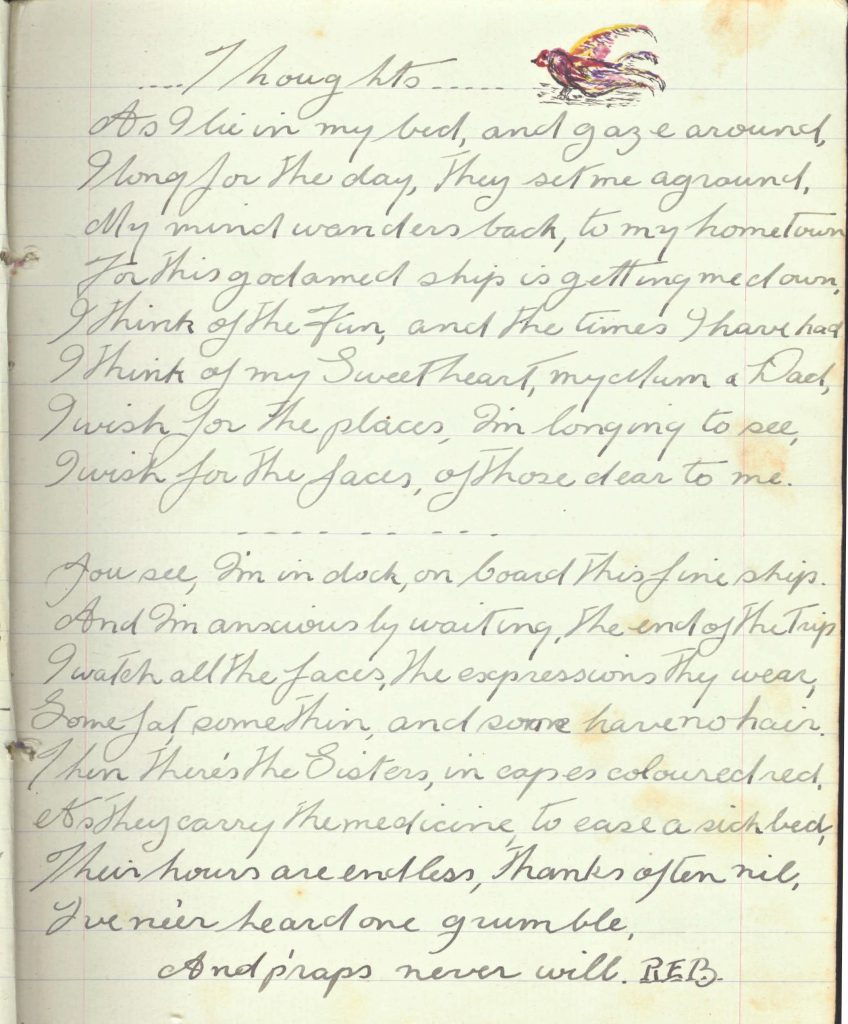 ....Thoughts.....
As I lie in my bed, and gaze around,
I long for the day, they set me aground,
My mind wanders back, to my hometown
For this godamed ship is getting me down,
I think of the Fun, and the times I have had
I think of my Sweetheart, my Mum & Dad,
I wish for the places, I'm longing to see,
I wish for the faces, of those dear to me.
You see, I'm in dock, on board this fine ship.
And I'm anxiously waiting, the end of the Trip
I watch all the faces, the expressions thy wear,
Some fat some thin, and some have no hair.
Then there's the Sisters, in capes coloured red,
As they carry the medicine, to ease a sick bed,
Their hours are endless, thanks often nil,
I've ne'er heard one grumble,
And p'raps never will. R.E.B.